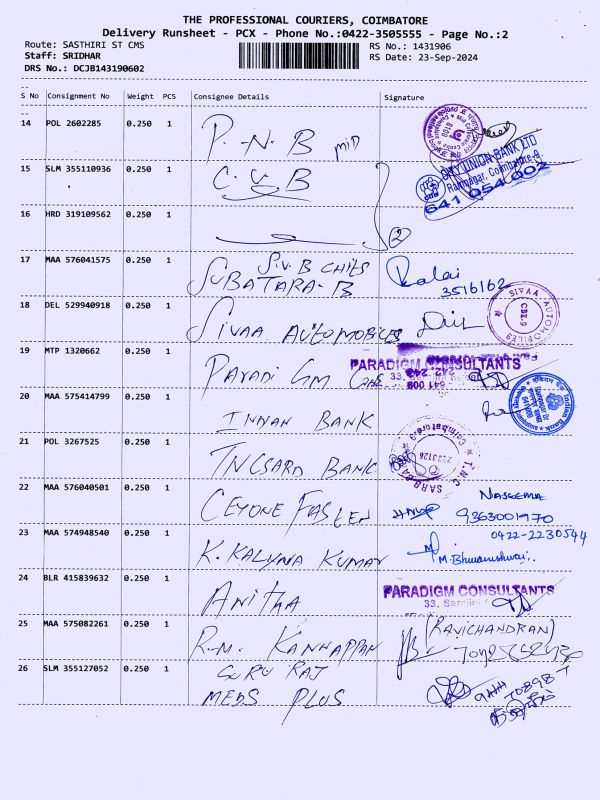 THE PROFESSIONAL COURIERS, COIMBATORE
Delivery Runsheet - PCX - Phone No.:0422-3505555 - Page No.:2
Route: SASTHIRI ST CMS
RS No.: 1431906
Staff: SRIDHAR
RS Date: 23-Sep-2024
DRS No.: DCJB143190602
S No Consignment No Weight PCS Consignee Details Signature
14 POL 2602285 0.250 1 P.N.B MID
15 SLM 355110936 0.250 1 C.U.B
CITY UNION BANK LTD
Ramnagar, Coimbatore-9.
641 054 002
16 HRD 319109562 0.250 1 2
17 MAA 576041575 0.250 1 S.V.B CHITS
SUBATARA- Kalai
3516162
18 DEL 529940918 0.250 1 SIVAA AUTOMOBILES
SIVAA AUTOMOBILES CBE.9
19 MTP 1320662 0.250 1 PARADIGM CONS
PARADIGM CONSULTANTS
20 MAA 575414799 0.250 1 INDIAN BANK
Indian Bank
21 POL 3267525 0.250 1 TNCSARD BANK
T.N.C SARD Coimbatore.9
22 MAA 576040501 0.250 1 CEYONE FASTEN
NASEEMA
9363001970
23 MAA 574948540 0.250 1 K. KALYNA KUMAR
0422-2230544
M.Bhuvaneshwari.
24 BLR 415839632 0.250 1 ANITHA
PARADIGM CONSULTANTS
25 MAA 575082261 0.250 1 R.M. KANNAPPAN
(RAVICHANDRAN)
26 SLM 355127052 0.250 1 GURU RAJ
MEDS PLUS